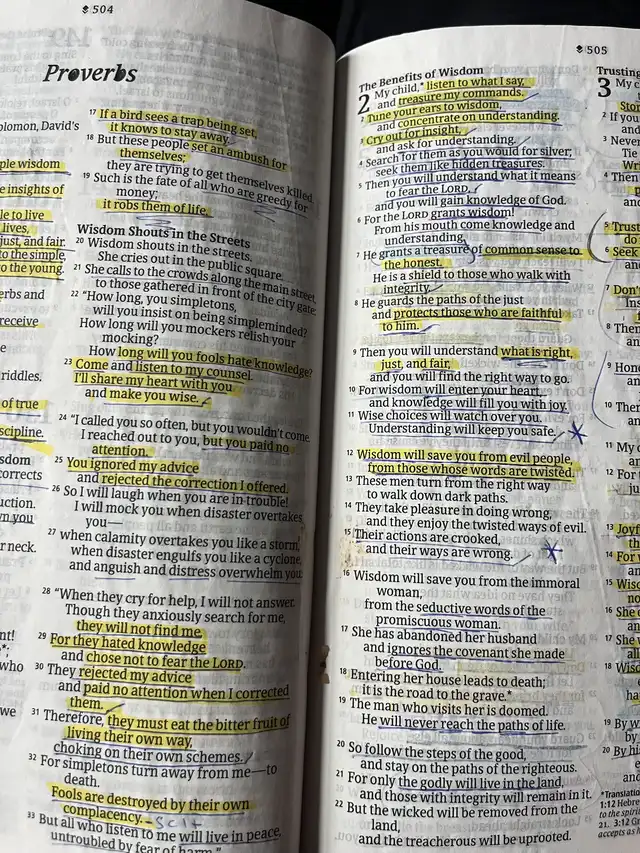 504
Proverbs
olomon, David's
ple wisdom
e insights of
le to live
lives,
just, and fair.
to the simple,
to the young.
erbs and
receive
riddles.
of true
scipline.
sdom
corrects
uction.
wn you
r neck.
nt!
*;
who
we
17 If a bird sees a trap being set,
it knows to stay away.
18 But these people set an ambush for
themselves;
they are trying to get themselves killed.
19 Such is the fate of all who are greedy for
money;
it robs them of life.
Wisdom Shouts in the Streets
20 Wisdom shouts in the streets.
She cries out in the public square.
21 She calls to the crowds along the main street,
to those gathered in front of the city gate:
22 “How long, you simpletons,
will you insist on being simpleminded?
How long will you mockers relish your
mocking?
How long will you fools hate knowledge?
23 Come and listen to my counsel.
I'll share my heart with you
and make you wise.
24 “I called you so often, but you wouldn't come.
I reached out to you, but you paid no
attention.
25 You ignored my advice
and rejected the correction I offered.
26 So I will laugh when you are in trouble!
I will mock you when disaster overtakes
you—
27 when calamity overtakes you like a storm,
when disaster engulfs you like a cyclone,
and anguish and distress overwhelm you.
28 “When they cry for help, I will not answer.
Though they anxiously search for me,
they will not find me.
29 For they hated knowledge
and chose not to fear the LORD.
30 They rejected my advice
and paid no attention when I corrected
them.
31 Therefore, they must eat the bitter fruit of
living their own way,
choking on their own schemes.
32 For simpletons turn away from me—to
death.
Fools are destroyed by their own
complacency. - Self
33 But all who listen to me will live in peace,
untroubled by fear of harm.”
505
The Benefits of Wisdom
2 My child,* listen to what I say,
and treasure my commands.
2 Tune your ears to wisdom,
and concentrate on understanding.
3 Cry out for insight,
and ask for understanding.
4 Search for them as you would for silver;
seek them like hidden treasures.
5 Then you will understand what it means
to fear the LORD,
and you will gain knowledge of God.
6 For the LORD grants wisdom!
From his mouth come knowledge and
understanding.
7 He grants a treasure of common sense to
the honest.
He is a shield to those who walk with
integrity.
8 He guards the paths of the just
and protects those who are faithful
to him.
9 Then you will understand what is right,
just, and fair,
and you will find the right way to go.
10 For wisdom will enter your heart,
and knowledge will fill you with joy.
11 Wise choices will watch over you.
Understanding will keep you safe.
12 Wisdom will save you from evil people,
from those whose words are twisted.
13 These men turn from the right way
to walk down dark paths.
14 They take pleasure in doing wrong,
and they enjoy the twisted ways of evil.
15 Their actions are crooked,
and their ways are wrong.
16 Wisdom will save you from the immoral
woman,
from the seductive words of the
promiscuous woman.
17 She has abandoned her husband
and ignores the covenant she made
before God.
18 Entering her house leads to death;
it is the road to the grave.*
19 The man who visits her is doomed.
He will never reach the paths of life.
20 So follow the steps of the good,
and stay on the paths of the righteous.
21 For only the godly will live in the land,
and those with integrity will remain in it.
22 But the wicked will be removed from the
land,
and the treacherous will be uprooted.
Trusting
3 My c
Sto
2 If you
an
3 Never
Tie
Wri
4 Then
and
5 Trust
do
6 Seek
an
7 Don't
Ins
8 Then
an
9 Hono
an
10 Then
an
11 My c
an
12 For t
in
13 Joyf
th
14 For v
an
15 Wis
no
16 She
an
17 She v
all
18 Wisd
ha
19 By w
by
20 By hi
*Translation
1:12 Hebre
to the spirit
21. 3:12 Gr
accepts as h